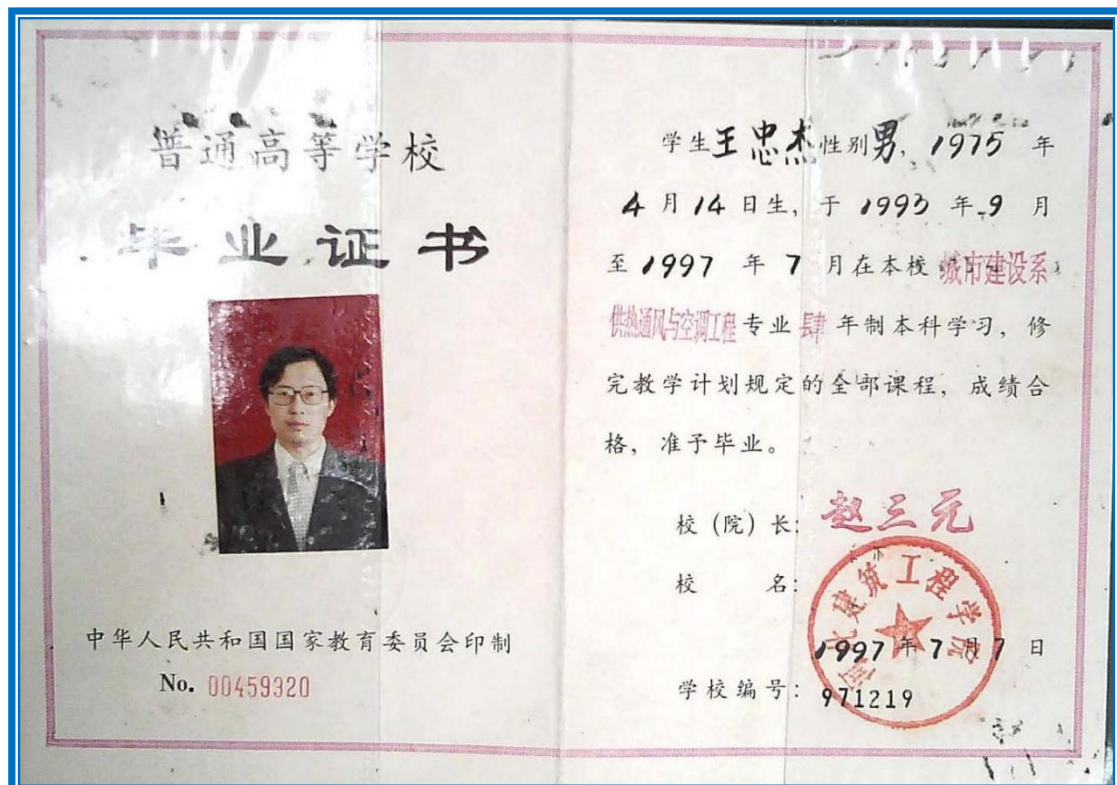 普通高等学校
毕业证书
中华人民共和国国家教育委员会印制
No. 00459320
学生王忠杰性别男，1975 年
4 月 14 日生，于 1993 年 9 月
至 1997 年 7 月在本校 城市建设系
供热通风与空调工程 专业 肆 年制本科学习，修
完教学计划规定的全部课程，成绩合
格，准予毕业。
校（院）长：赵三元
校 名：
河北建筑工程学院
1997 年 7 月 7 日
学校编号：971219